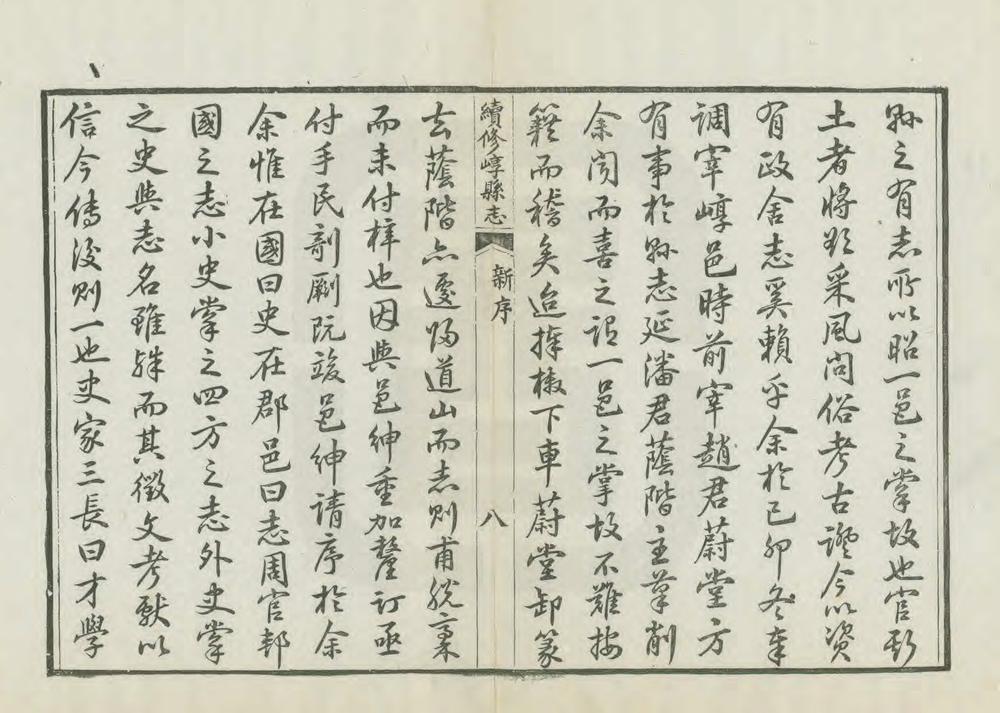 縣之有志所以昭一邑之掌故也官斯
土者將欲采風問俗考古證今以資
有政舍志奚賴乎余於己卯冬奉
調宰崞邑時前宰趙君蔚堂方
有事於縣志延潘君蔭階主筆削
余聞而喜之謂一邑之掌故不難按
籍而稽矣迨捧檄下車蔚堂卸篆
續修崞縣志 新序 八
去蔭階亦遽歸道山而志則甫脫稾
而未付梓也因與邑紳重加釐訂亟
付手民剞劂既竣邑紳請序於余
余惟在國曰史在郡邑曰志周官邦
國之志小史掌之四方之志外史掌
之史與志名雖殊而其徵文考獻以
信今傳後則一也史家三長曰才學